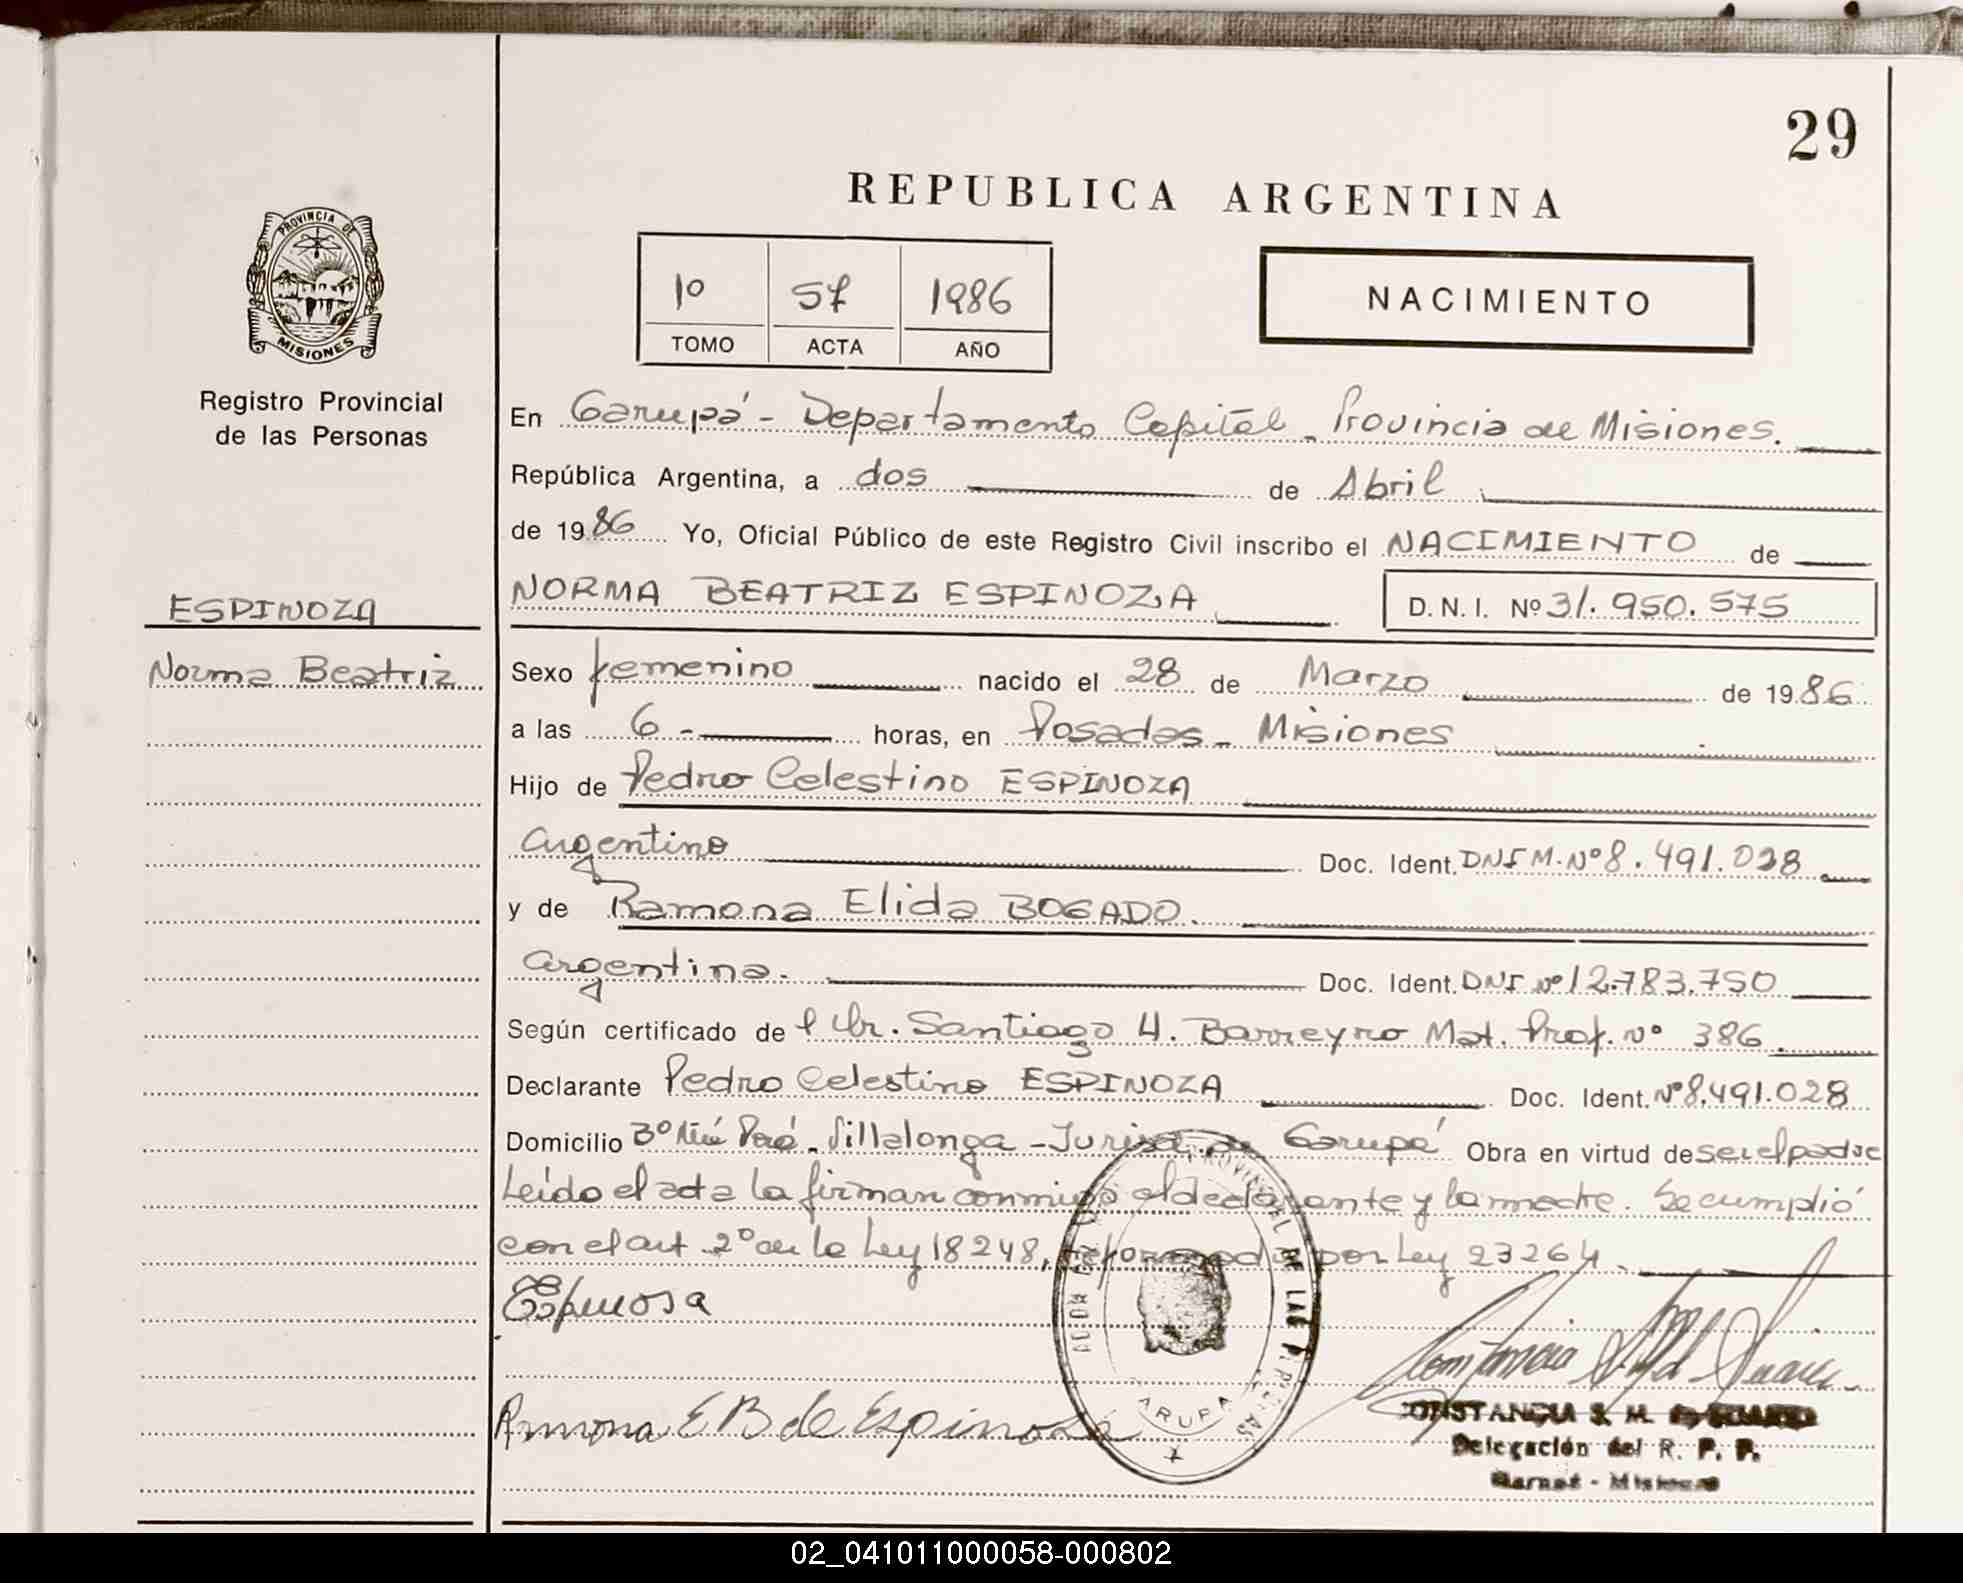 29
REPUBLICA ARGENTINA
PROVINCIA DE
MISIONES
Registro Provincial
de las Personas
1º 57 1986
TOMO ACTA AÑO
NACIMIENTO
En Garupá - Departamento Capital - Provincia de Misiones.
República Argentina, a dos de Abril
de 1986 Yo, Oficial Público de este Registro Civil inscribo el NACIMIENTO de
ESPINOZA
NORMA BEATRIZ ESPINOZA D.N.I. Nº 31.950.575
Norma Beatriz
Sexo femenino nacido el 28 de Marzo de 1986
a las 6 - horas, en Posadas - Misiones
Hijo de Pedro Celestino ESPINOZA
Argentino Doc. Ident. DNI M. Nº 8.491.028
y de Ramona Elida BOGADO.
Argentina. Doc. Ident. DNI Nº 12.783.750
Según certificado de Dr. Santiago H. Barreyro Mat. Prof. Nº 386.
Declarante Pedro Celestino ESPINOZA Doc. Ident. Nº 8.491.028
Domicilio Villalonga - de Garupá Obra en virtud de ser el padre
Leído el acta la firman conmigo el declarante y la madre. Se cumplió
con el art. 2º de la Ley 18248, reformada por Ley 23264
Espinosa
Ramona E B de Espinosa
CONSTANCIA S. M.
Delegación del R. P. P.
Misiones
02_041011000058-000802